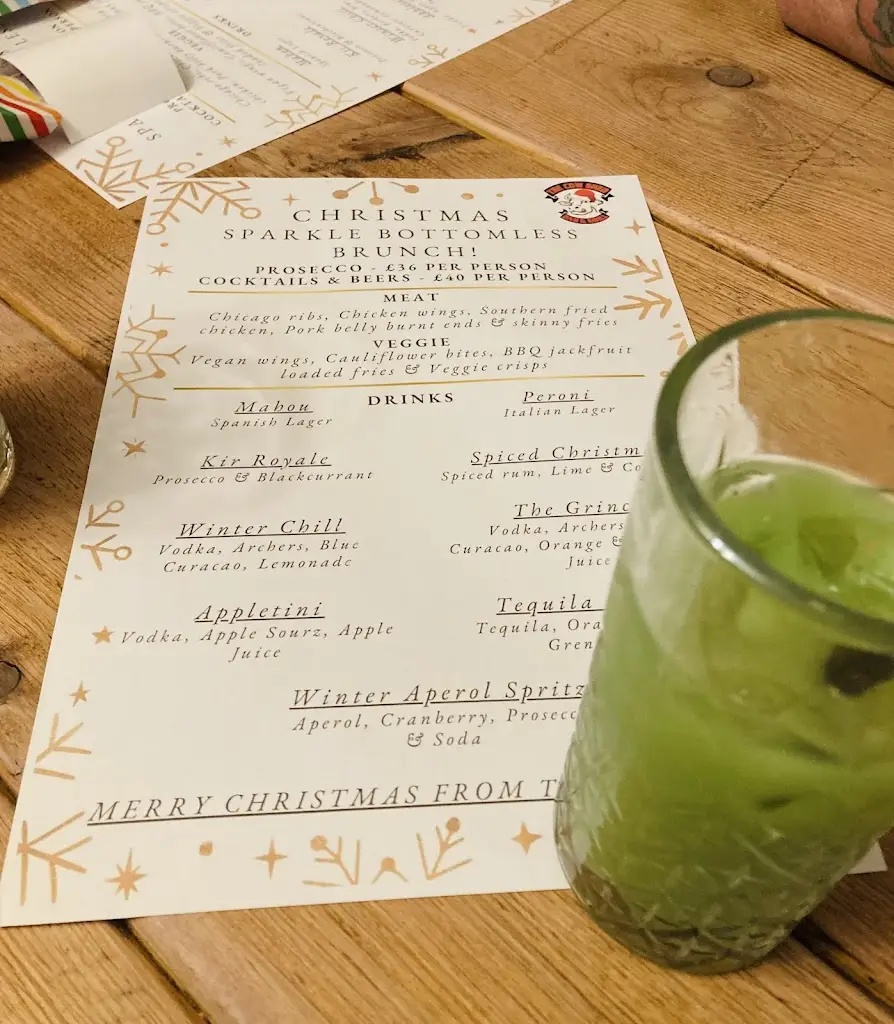 CHRISTMAS
SPARKLE BOTTOMLESS
BRUNCH!
PROSECCO - £36 PER PERSON
COCKTAILS & BEERS - £40 PER PERSON
MEAT
Chicago ribs, Chicken wings, Southern fried
chicken, Pork belly burnt ends & skinny fries
VEGGIE
Vegan wings, Cauliflower bites, BBQ jackfruit
loaded fries & Veggie crisps
DRINKS
Mahou
Spanish Lager
Peroni
Italian Lager
Kir Royale
Prosecco & Blackcurrant
Spiced Christm
Spiced rum, Lime & Co
Winter Chill
Vodka, Archers, Blue
Curacao, Lemonade
The Grinc
Vodka, Archers
Curacao, Orange &
Juice
Appletini
Vodka, Apple Sourz, Apple
Juice
Tequila
Tequila, Ora
Gren
Winter Aperol Spritz
Aperol, Cranberry, Prosecc
& Soda
MERRY CHRISTMAS FROM T